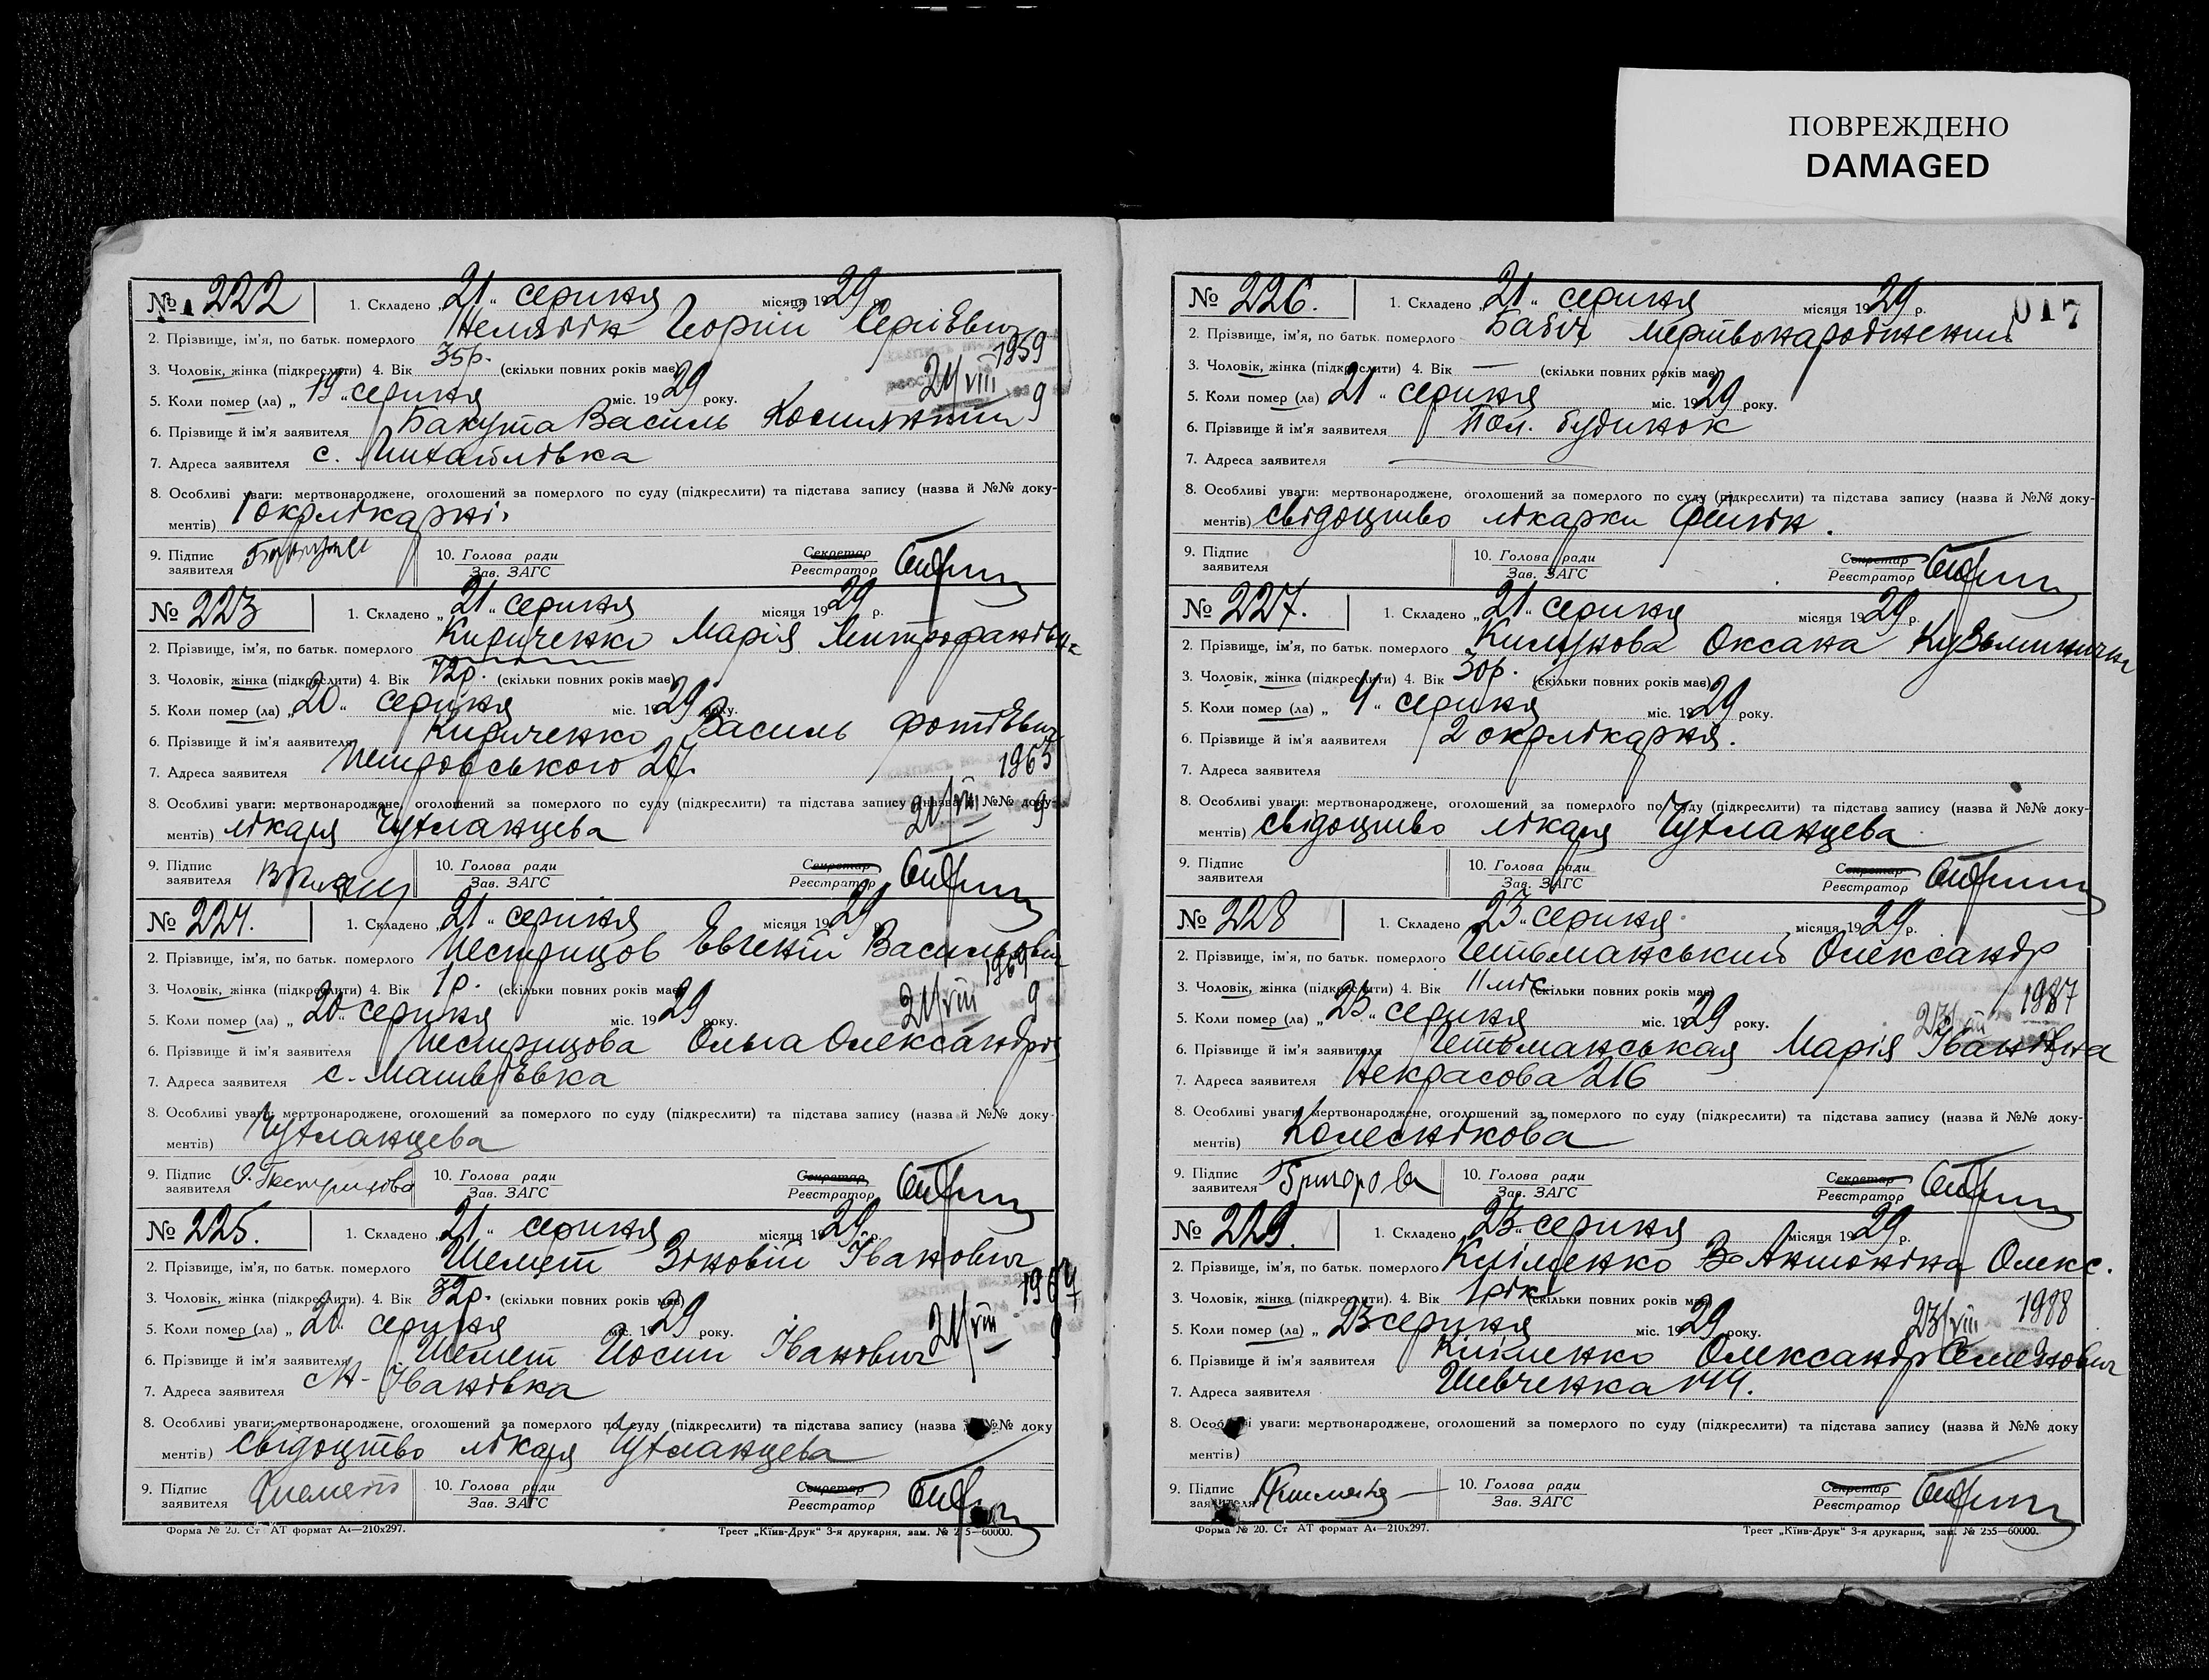 ПОВРЕЖДЕНО
DAMAGED
017
№ 222
1. Складено „21“ серпня місяця 1929 р.
2. Прізвище, ім'я, по батьк. померлого Георгій Сергієвич
3. Чоловік, жінка (підкреслити) 4. Вік 35р. (скільки повних років має)
1959
5. Коли помер (ла) „19“ серпня міс. 1929 року.
21/VIII 9
6. Прізвище й ім'я заявителя Бакута Василь
7. Адреса заявителя с. Михайлівка
8. Особливі уваги: мертвонароджене, оголошений за померлого по суду (підкреслити) та підстава запису (назва й №№ доку-
ментів) 1 окрлікарні
9. Підпис заявителя
10. Голова ради Зав. ЗАГС
Секретар Реєстратор
№ 223
1. Складено „21“ серпня місяця 1929 р.
2. Прізвище, ім'я, по батьк. померлого Кириченко Марія Митрофанівна
3. Чоловік, жінка (підкреслити) 4. Вік 72р. (скільки повних років має)
5. Коли помер (ла) „20“ серпня міс. 1929 року.
6. Прізвище й ім'я заявителя Кириченко Василь Фотієвич
7. Адреса заявителя Петровського 27.
1963
8. Особливі уваги: мертвонароджене, оголошений за померлого по суду (підкреслити) та підстава запису (назва й №№ доку-
21/VIII 9
ментів) лікаря Чутланцева
9. Підпис заявителя
10. Голова ради Зав. ЗАГС
Секретар Реєстратор
№ 224.
1. Складено „21“ серпня місяця 1929 р.
2. Прізвище, ім'я, по батьк. померлого Пестрицов Евгеній Васильович
3. Чоловік, жінка (підкреслити) 4. Вік 1р. (скільки повних років має)
1969
5. Коли помер (ла) „20“ серпня міс. 1929 року.
21/VIII 9
6. Прізвище й ім'я заявителя Пестрицова Ольга Олександрів
7. Адреса заявителя с. Матвієвка
8. Особливі уваги: мертвонароджене, оголошений за померлого по суду (підкреслити) та підстава запису (назва й №№ доку-
ментів) Чутланцева
9. Підпис заявителя О. Пестрицова
10. Голова ради Зав. ЗАГС
Секретар Реєстратор
№ 225.
1. Складено „21“ серпня місяця 1929 р.
2. Прізвище, ім'я, по батьк. померлого Шемет Зіновій Іванович
3. Чоловік, жінка (підкреслити). 4. Вік 32р. (скільки повних років має)
5. Коли помер (ла) „20“ серпня міс. 1929 року.
21/VIII 9
6. Прізвище й ім'я заявителя Шемет Йосип Іванович
7. Адреса заявителя М-Іванівка
8. Особливі уваги: мертвонароджене, оголошений за померлого по суду (підкреслити) та підстава запису (назва й №№ доку
ментів) свідоцтво лікаря Чутланцева
9. Підпис заявителя Шемет
10. Голова ради Зав. ЗАГС
Секретар Реєстратор
Форма № 20. Ст АТ формат А4—210х297.
Трест „Київ-Друк“ 3-я друкарня, зам. № 2 5—60000.
№ 226.
1. Складено „21“ серпня місяця 1929 р.
2. Прізвище, ім'я, по батьк. померлого Бабіч мертвонароджений
3. Чоловік, жінка (підкреслити) 4. Вік — (скільки повних років має)
5. Коли помер (ла) 21 “ серпня міс. 1929 року.
6. Прізвище й ім'я заявителя Пол. будинок
7. Адреса заявителя —
8. Особливі уваги: мертвонароджене, оголошений за померлого по суду (підкреслити) та підстава запису (назва й №№ доку-
ментів) свідоцтво лікарки
9. Підпис заявителя
10. Голова ради Зав. ЗАГС
Секретар Реєстратор
№ 227.
1. Складено „21“ серпня місяця 1929 р.
2. Прізвище, ім'я, по батьк. померлого Оксана
3. Чоловік, жінка (підкреслити) 4. Вік 30р. (скільки повних років має)
5. Коли помер (ла) „ “ серпня міс. 1929 року.
6. Прізвище й ім'я заявителя 2 окрлікарня.
7. Адреса заявителя
8. Особливі уваги: мертвонароджене, оголошений за померлого по суду (підкреслити) та підстава запису (назва й №№ доку-
ментів) свідоцтво лікаря Чутланцева
9. Підпис заявителя
10. Голова ради Зав. ЗАГС
Секретар Реєстратор
№ 228
1. Складено „23“ серпня місяця 1929 р.
2. Прізвище, ім'я, по батьк. померлого Гетьманський Олександр
3. Чоловік, жінка (підкреслити) 4. Вік 11 міс (скільки повних років має)
1987
5. Коли помер (ла) „23“ серпня міс. 1929 року.
23/VIII
6. Прізвище й ім'я заявителя Гетьманськая Марія Іванівна
7. Адреса заявителя Некрасова 216
8. Особливі уваги: мертвонароджене, оголошений за померлого по суду (підкреслити) та підстава запису (назва й №№ доку-
ментів) Колеснікова
9. Підпис заявителя
10. Голова ради Зав. ЗАГС
Секретар Реєстратор
№ 229.
1. Складено „23“ серпня місяця 1929 р.
2. Прізвище, ім'я, по батьк. померлого Кліменко Антоніна Олекс.
3. Чоловік, жінка (підкреслити). 4. Вік 1 рік (скільки повних років має)
1988
5. Коли помер (ла) „23 серпня міс. 1929 року.
23/VIII
6. Прізвище й ім'я заявителя Кліменко Олександр Семенович
7. Адреса заявителя Шевченка 144.
8. Особливі уваги: мертвонароджене, оголошений за померлого по суду (підкреслити) та підстава запису (назва й №№ доку
ментів)
9. Підпис заявителя
10. Голова ради Зав. ЗАГС
Секретар Реєстратор
Форма № 20. Ст АТ формат А4—210х297.
Трест „Київ-Друк“ 3-я друкарня, зам. № 255—60000.